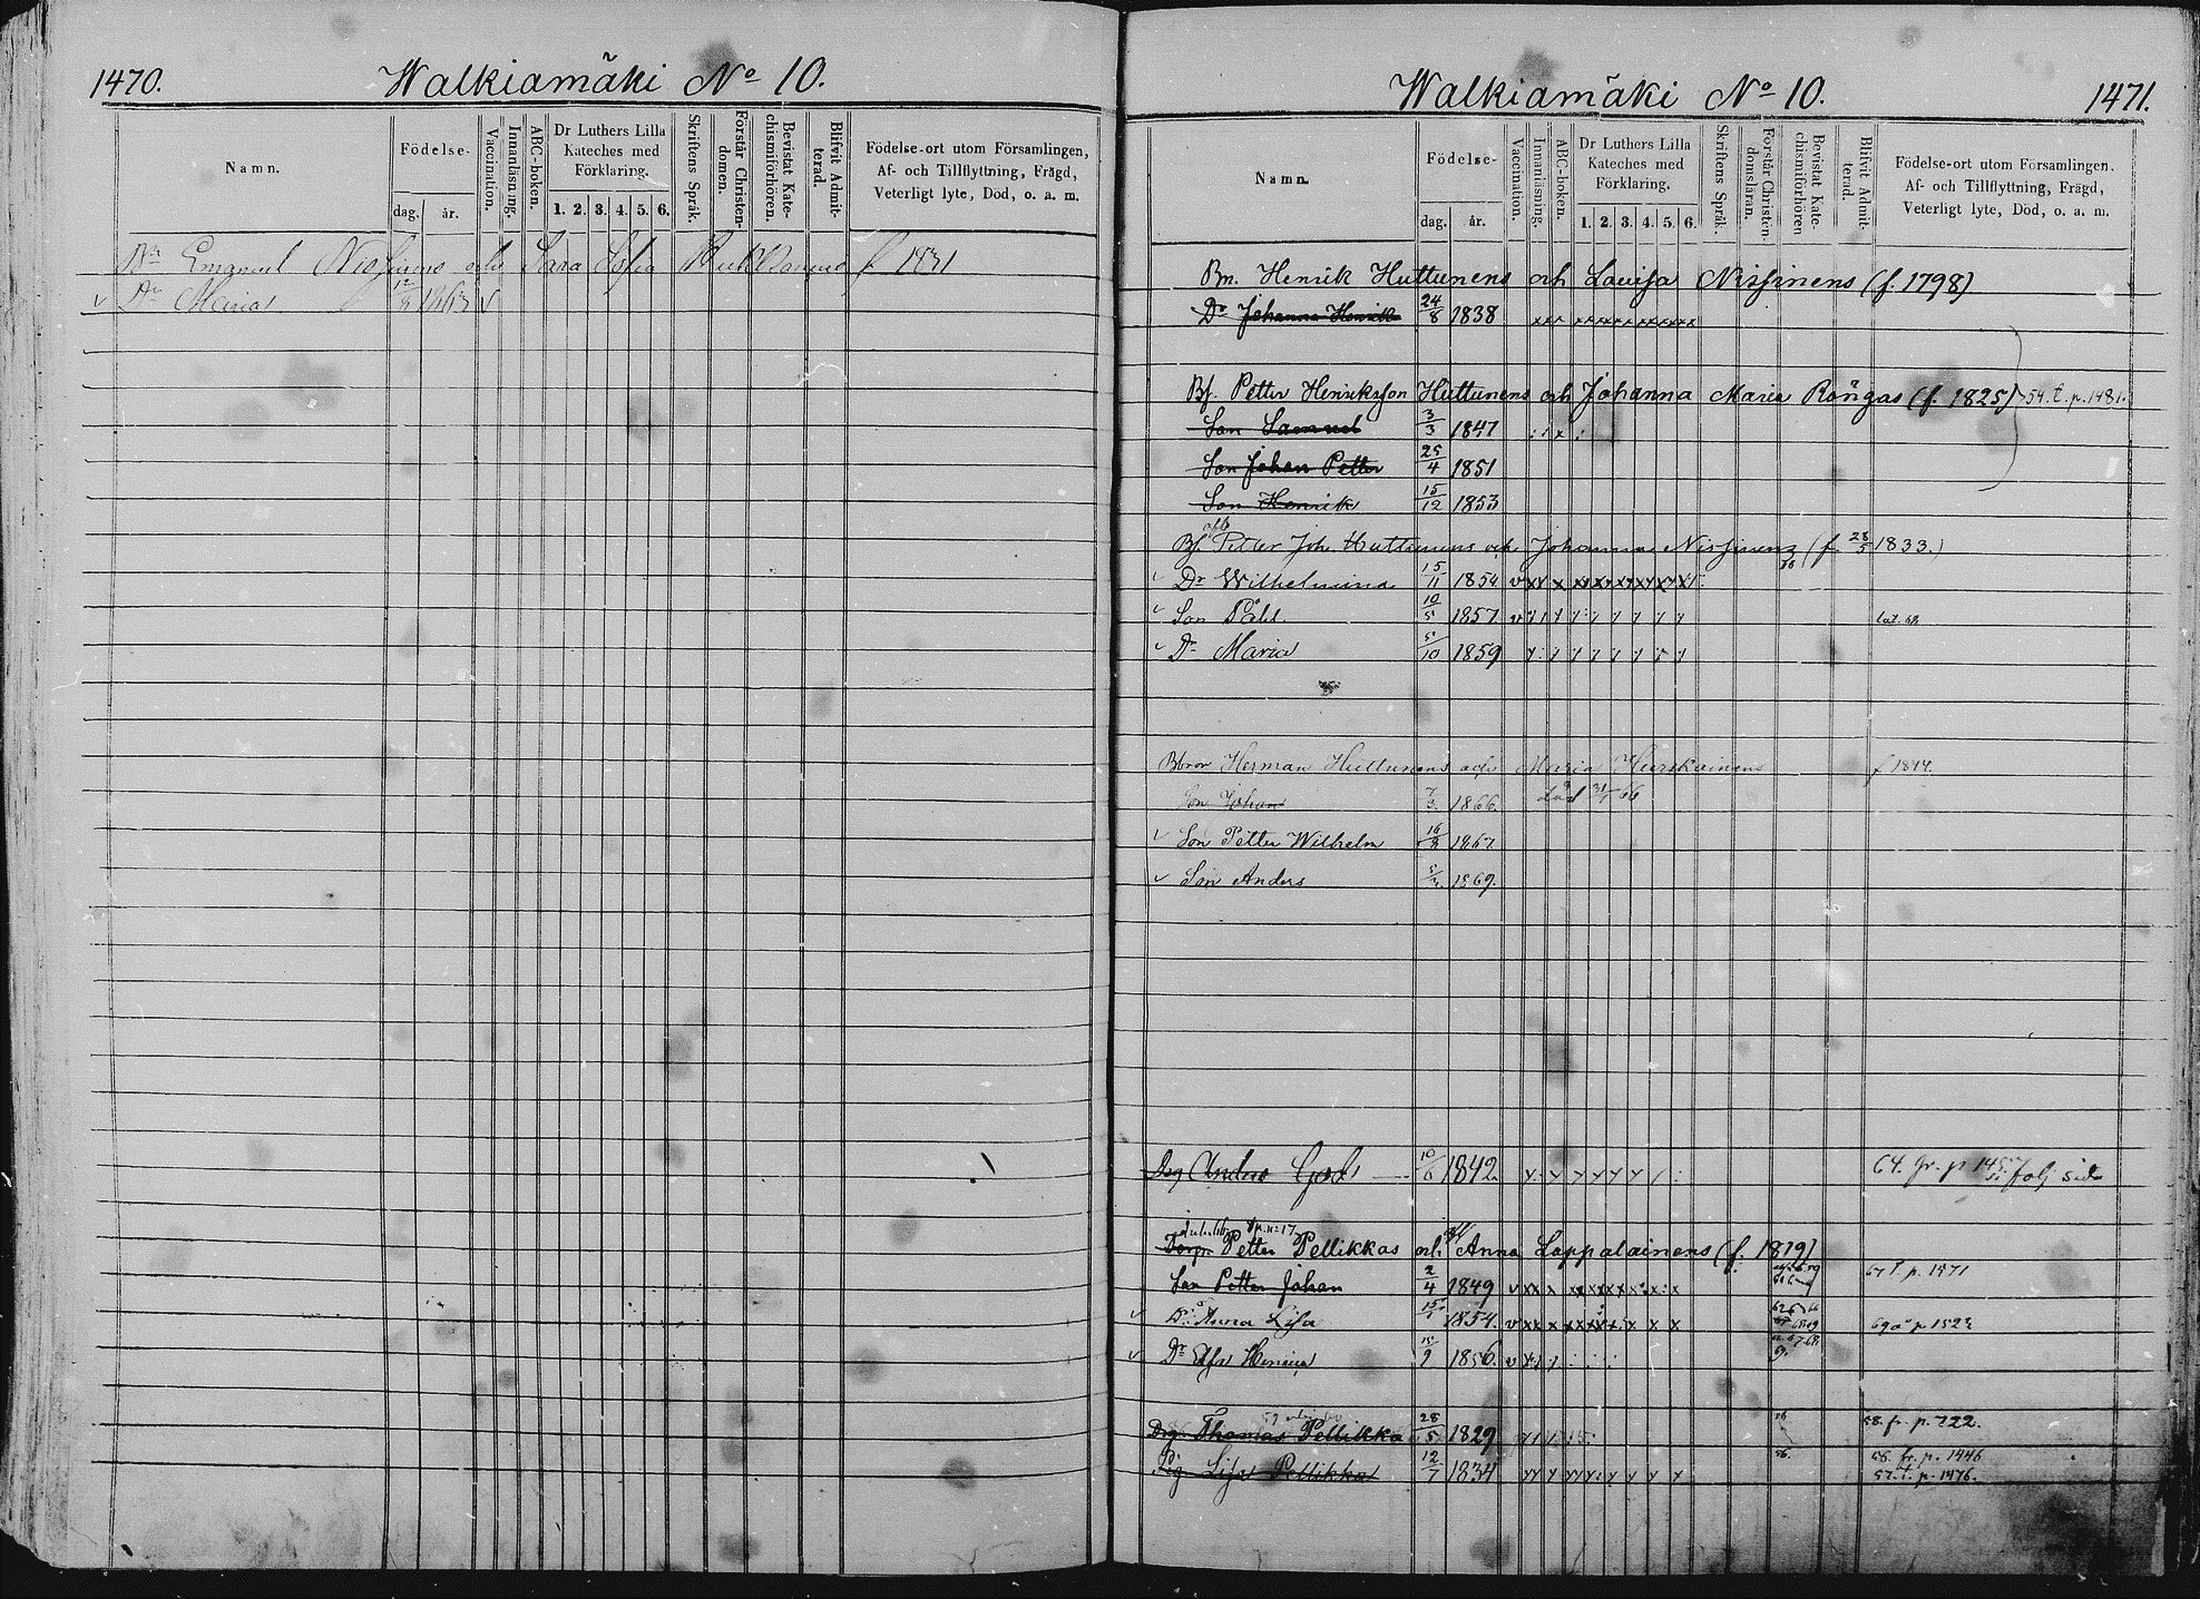 1470.
Walkiamäki No 10.
Namn.
Födelse-
dag.
år.
Vaccination.
Innanläsning.
ABC-boken.
Dr Luthers Lilla Kateches med Förklaring.
1. 2. 3. 4. 5. 6.
Skriftens Språk.
Förstår Christen-domen.
Bevistat Kate-chismiförhören.
Blifvit Admit-terad.
Födelse-ort utom Församlingen,
Af- och Tillflyttning, Frägd,
Veterligt lyte, Död, o. a. m.
Emanuel Nissinens och Sara Sofia f 1831
v Dr Maria 1863 v
Walkiamäki No 10.
1471.
Namn.
Födelse-
dag.
år.
Vaccination.
Innanläsning.
ABC-boken.
Dr Luthers Lilla Kateches med Förklaring.
1. 2. 3. 4. 5. 6.
Skriftens Språk.
Förstår Christen-domsläran.
Bevistat Kate-chismiförhören
Blifvit Admit-terad.
Födelse-ort utom Församlingen.
Af- och Tillflyttning, Frägd,
Veterligt lyte, Död, o. a. m.
Bn. Henrik Huttunens och Lovisa Nissinens (f. 1798)
Dr Johanna Henrika 24/8 1838
Bf. Petter Henriksson Huttunens och Johanna Maria Röngas (f. 1825) 54. t. p. 1481.
Son Samuel 3/3 1847
Son Johan Petter 25/4 1851
Son Henrik 15/12 1853
Bf. Petter Joh. Huttunens och Johanna Nissinens (f. 28/5 1833.)
v Dr Wilhelmina 15/11 1854
v Son Påhl. 10/5 1857
v Dr Maria 5/10 1859
Herman Huttunens och Maria Hurskainens f 1844.
Son Johan 7/3 1866. död 66
v Son Petter Wilhelm 1867
v Son Anders 1869.
Drg Anders 10/6 1842. 64. fr. p följ sida
Torp. Petter Pellikkas och Anna Lappalainens (f. 1819)
Son Petter Johan 2/4 1849 67 t. p. 1471
v Dr Anna Lisa 1854.
v Dr 1856.
Drg Thomas Pellikka 28/5 1829 58. fr. p. 722.
Pig Lisa Pellikka 12/7 1834 56. fr. p. 1446
57. t. p. 1476.